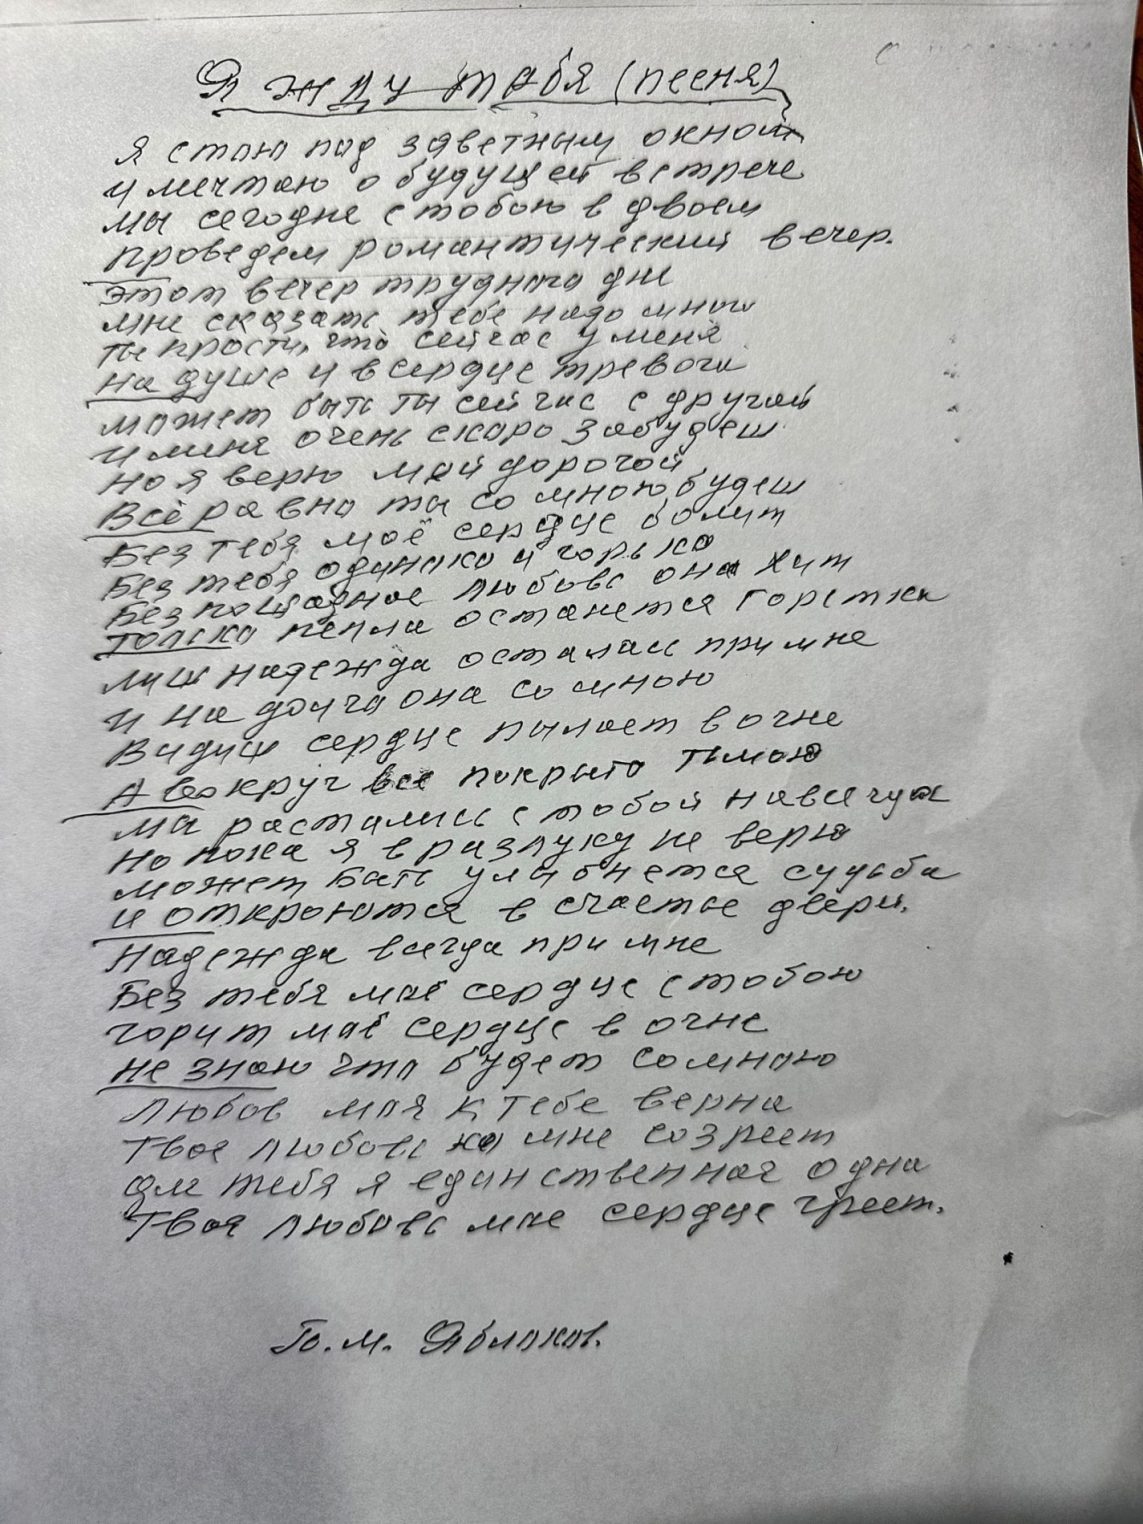 Я жду тебя (песня)
Я стою под заветным окном
и мечтаю о будущей встрече
мы сегодне с тобою в двоем
проведем романтический вечер.
этот вечер трудного дне
мне сказать тебе надо много
ты прости, что сейчас у меня
на душе и в сердце тревоги
может быть ты сейчас с другой
и меня очень скоро забудеш
но я верю мой дорогой
Всё равно ты со мною будеш
Без тебя моё сердце болит
Без тебя одиноко и горько
Беспощадное любовь она
только пепла останется горстка
лиш надежда осталась при мне
и на долга она со мною
Видиш сердце пылает в огне
А вокруг все покрыто тьмою
мы растались с тобой навсегда
но пока я в разлуку не верю
может быть улыбнется судьба
и откроются в счастье двери.
Надежда всегда при мне
Без тебя моё сердце с тобою
горит моё сердце в огне
не знаю что будет со мною
Любов моя к тебе верна
Твоя любовь ко мне созреет
для тебя я единственная одна
Твоя любовь мое сердце греет.
Ю. М. Яблоков.